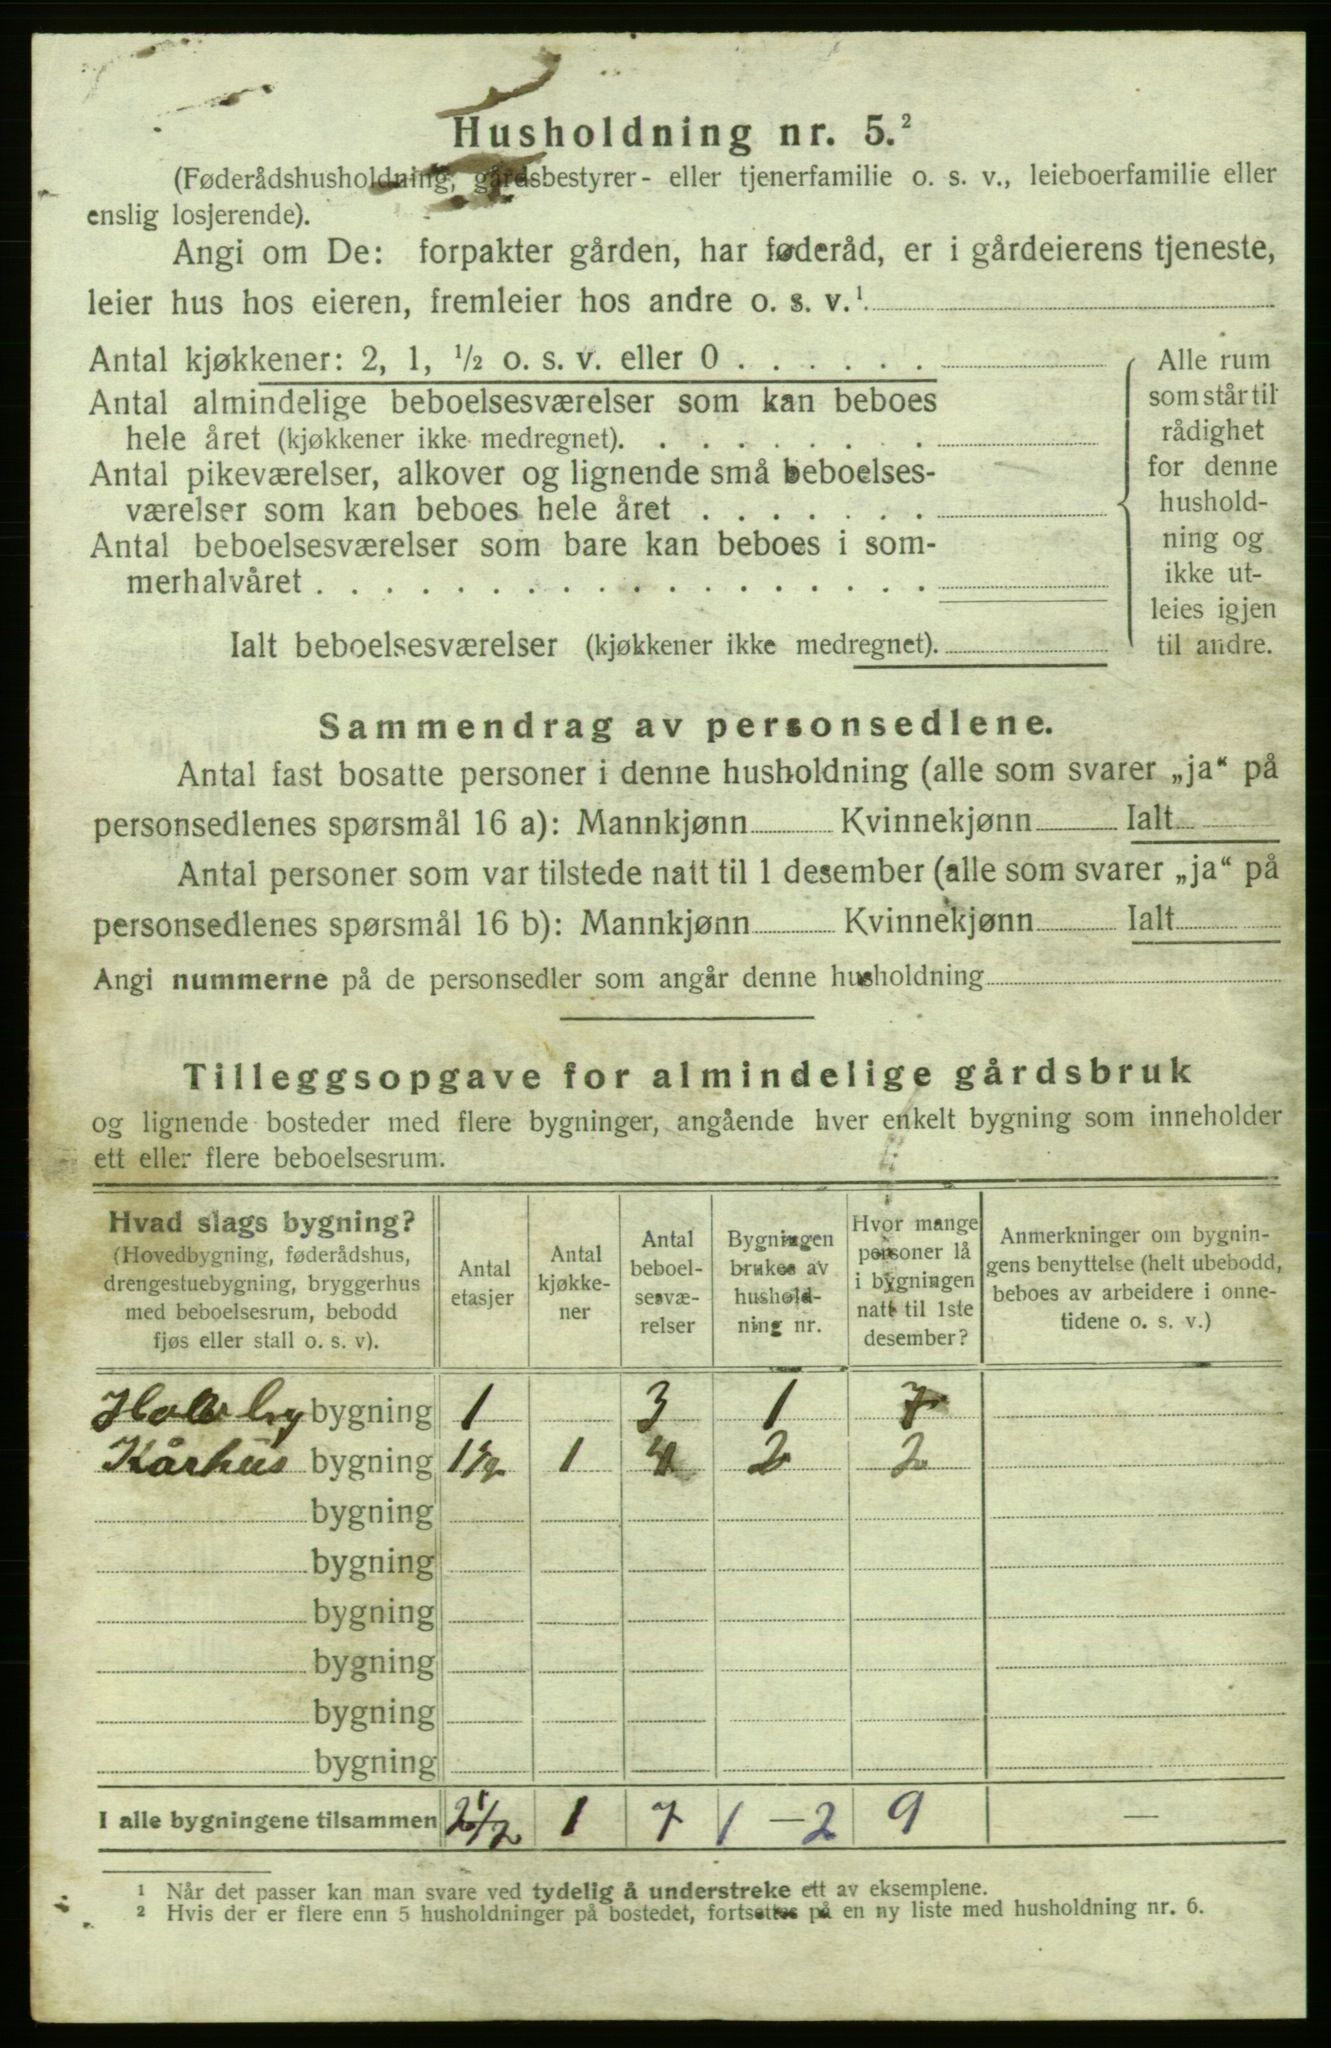 Husholdning nr. 5.²
(Føderådshusholdning, gårdsbestyrer- eller tjenerfamilie o. s. v., leieboerfamilie eller
enslig losjerende).
Angi om De: forpakter gården, har føderåd, er i gårdeierens tjeneste,
leier hus hos eieren, fremleier hos andre o. s. v.¹
Antal kjøkkener: 2, 1, ½ o. s. v. eller 0 . . . . . .
Antal almindelige beboelsesværelser som kan beboes
hele året (kjøkkener ikke medregnet). . . . . . . . .
Antal pikeværelser, alkover og lignende små beboelses-
værelser som kan beboes hele året . . . . . . .
Antal beboelsesværelser som bare kan beboes i som-
merhalvåret . . . . . . . . . . . . . . . . .
Ialt beboelsesværelser (kjøkkener ikke medregnet).
Alle rum
som står til
rådighet
for denne
hushold-
ning og
ikke ut-
leies igjen
til andre.
Sammendrag av personsedlene.
Antal fast bosatte personer i denne husholdning (alle som svarer „ja“ på
personsedlenes spørsmål 16 a): Mannkjønn Kvinnekjønn Ialt
Antal personer som var tilstede natt til 1 desember (alle som svarer „ja“ på
personsedlenes spørsmål 16 b): Mannkjønn Kvinnekjønn Ialt
Angi nummerne på de personsedler som angår denne husholdning
Tilleggsopgave for almindelige gårdsbruk
og lignende bosteder med flere bygninger, angående hver enkelt bygning som inneholder
ett eller flere beboelsesrum.
Hvad slags bygning?
(Hovedbygning, føderådshus,
drengestuebygning, bryggerhus
med beboelsesrum, bebodd
fjøs eller stall o. s. v).
Antal
etasjer
Antal
kjøkke-
ner
Antal
beboel-
sesvæ-
relser
Bygningen
brukes av
hushold-
ning nr.
Hvor mange
personer lå
i bygningen
natt til 1ste
desember?
Anmerkninger om bygnin-
gens benyttelse (helt ubebodd,
beboes av arbeidere i onne-
tidene o. s. v.)
bygning 1 3 1 7
Kårhus bygning 1½ 1 4 2 2
bygning
bygning
bygning
bygning
bygning
bygning
I alle bygningene tilsammen 2½ 1 7 1–2 9 —
¹ Når det passer kan man svare ved tydelig å understreke ett av eksemplene.
² Hvis der er flere enn 5 husholdninger på bostedet, fortsettes på en ny liste med husholdning nr. 6.